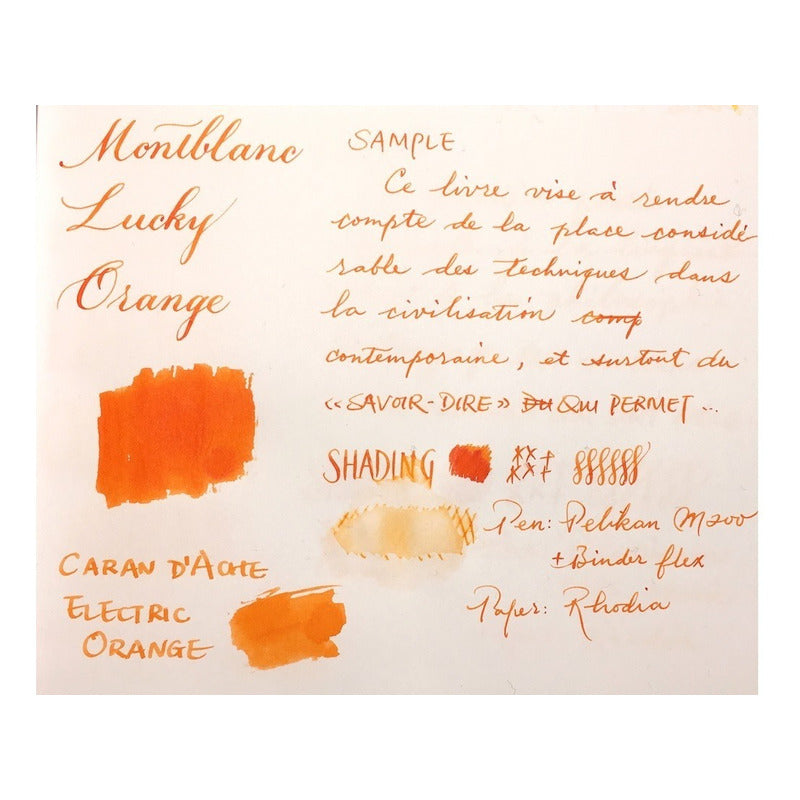 Montblanc
Lucky
Orange
SAMPLE
Ce livre vise à rendre
compte de la place considé
rable des techniques dans
la civilisation comp
contemporaine, et surtout du
«SAVOIR-DIRE» DU QUI PERMET ...
SHADING
Pen: Pelikan M200
+ Binder flex
Paper: Rhodia
CARAN D'ACHE
ELECTRIC
ORANGE